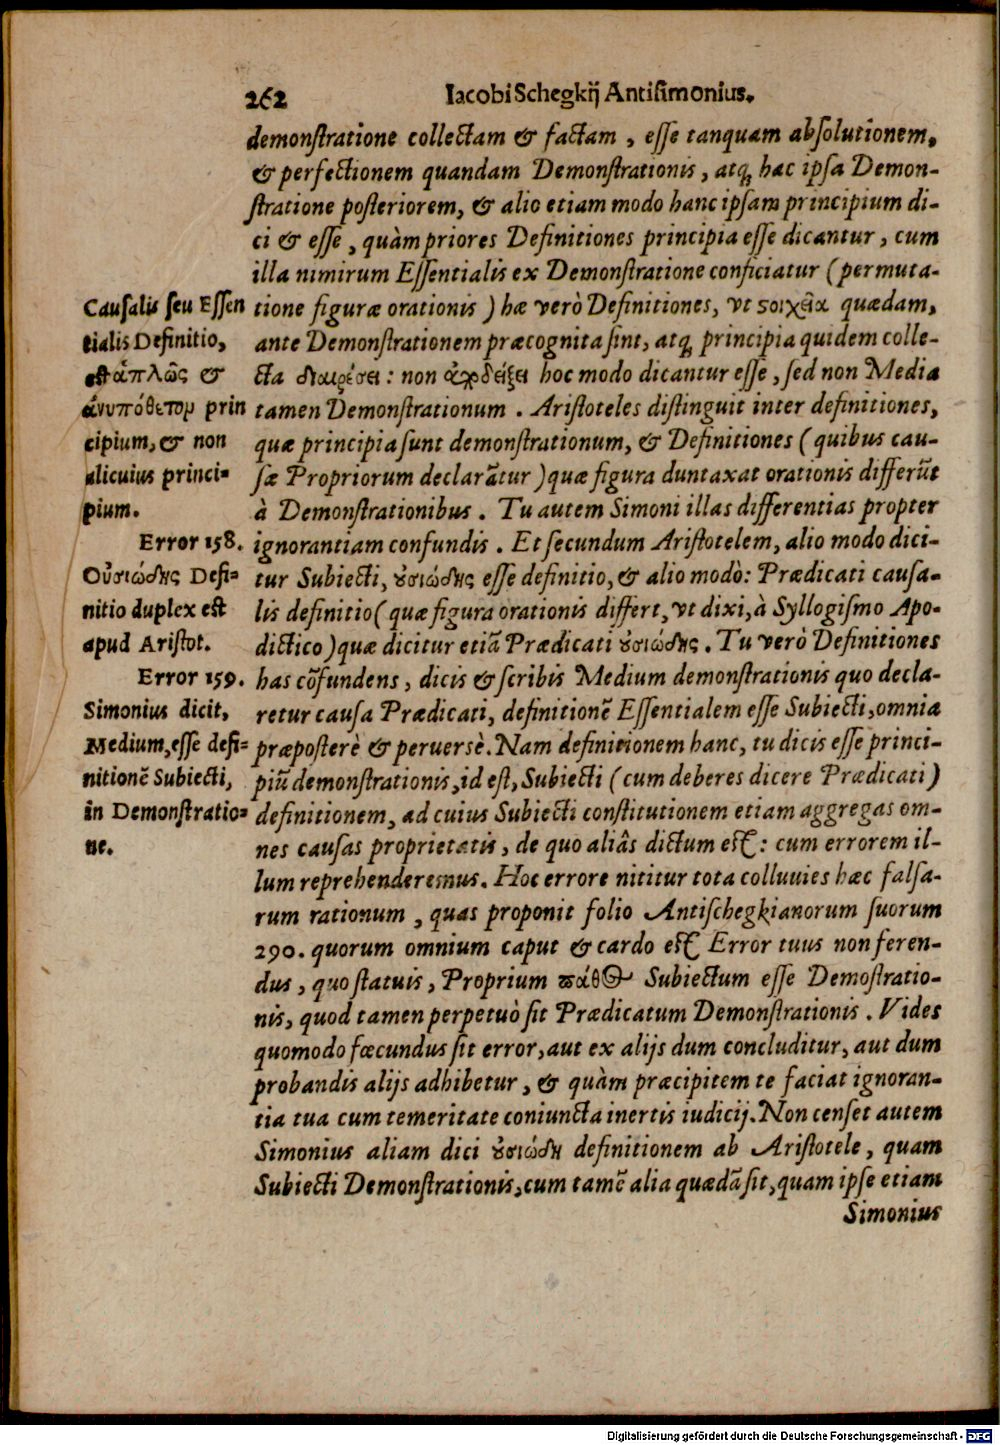 262
Iacobi Schegkij Antisimonius.
demonstratione collectam & factam, esse tanquam absolutionem,
& perfectionem quandam Demonstrationis, atq; hac ipsa Demon-
stratione posteriorem, & alio etiam modo hanc ipsam principium di-
ci & esse, quàm priores Definitiones principia esse dicantur, cum
illa nimirum Essentialis ex Demonstratione conficiatur (permuta-
tione figuræ orationis) hæ verò Definitiones, vt ςοιχεῖα quædam,
ante Demonstrationem præcognita sint, atq; principia quidem colle-
cta διαιρέσει: non ἀποδείξει hoc modo dicantur esse, sed non Media
tamen Demonstrationum. Aristoteles distinguit inter definitiones,
quæ principia sunt demonstrationum, & Definitiones (quibus cau-
sæ Propriorum declarātur) quæ figura duntaxat orationis differūt
à Demonstrationibus. Tu autem Simoni illas differentias propter
ignorantiam confundis. Et secundum Aristotelem, alio modo dici-
tur Subiecti, ȣσιώδης esse definitio, & alio modò: Prædicati causa-
lis definitio (quæ figura orationis differt, vt dixi, à Syllogismo Apo-
dictico) quæ dicitur etiā Prædicati ȣσιώδης. Tu verò Definitiones
has cōfundens, dicis & scribis Medium demonstrationis quo decla-
retur causa Prædicati, definitionē Essentialem esse Subiecti, omnia
præposterè & peruersè. Nam definitionem hanc, tu dicis esse princi-
piū demonstrationis, id est, Subiecti (cum deberes dicere Prædicati)
definitionem, ad cuius Subiecti constitutionem etiam aggregas om-
nes causas proprietatis, de quo aliâs dictum est: cum errorem il-
lum reprehenderemus. Hoc errore nititur tota colluuies hæc falsa-
rum rationum, quas proponit folio Antischegkianorum suorum
290. quorum omnium caput & cardo est Error tuus non feren-
dus, quo statuis, Proprium πάθος Subiectum esse Demostratio-
nis, quod tamen perpetuò sit Prædicatum Demonstrationis. Vides
quomodo fœcundus sit error, aut ex alijs dum concluditur, aut dum
probandis alijs adhibetur, & quàm præcipitem te faciat ignoran-
tia tua cum temeritate coniuncta inertis iudicij. Non censet autem
Simonius aliam dici ȣσιώδη definitionem ab Aristotele, quam
Subiecti Demonstrationis, cum tamē alia quædā sit, quam ipse etiam
Simonius
Causalis seu Essen
tialis Definitio,
est ἁπλῶς &
ἀνυπόθετον prin
cipium, & non
alicuius princi-
pium.
Error 158.
Οὐσιώδης Defi-
nitio duplex est
apud Aristot.
Error 159.
Simonius dicit,
Medium, esse defi-
nitionē Subiecti,
in Demonstratio-
ne.
Digitalisierung gefördert durch die Deutsche Forschungsgemeinschaft - DFG